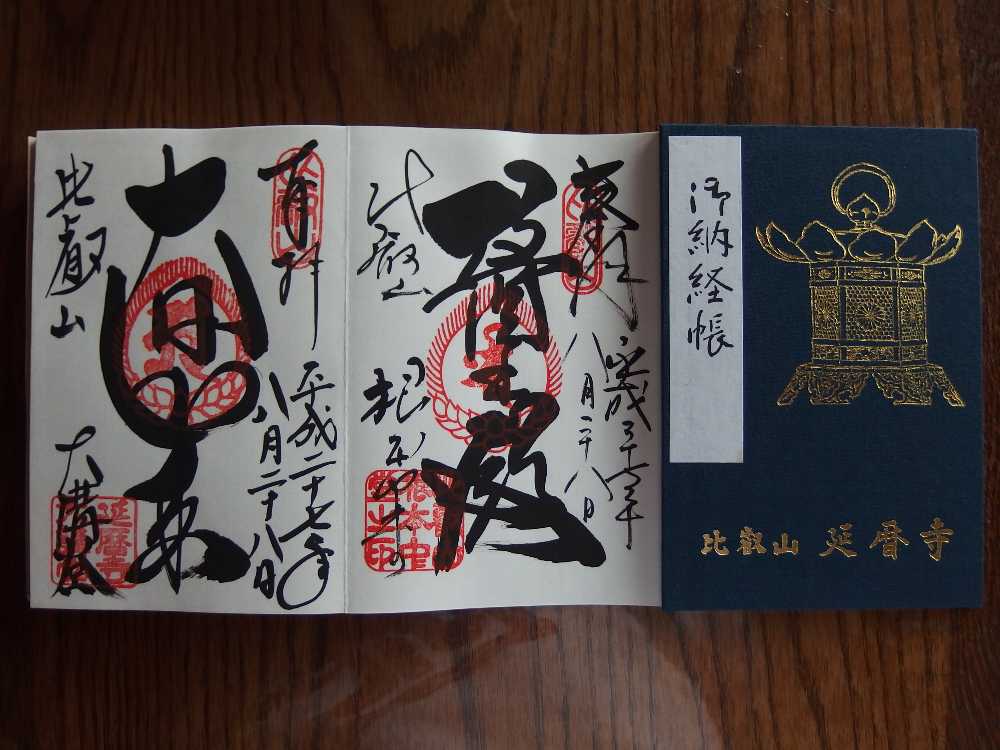 御納経帳
比叡山 延暦寺
奉拝
平成二十七年
八月二十八日
醫王殿
比叡山
根本中堂
奉拝
平成二十七年
八月二十八日
大日如来
比叡山
大講堂
延暦寺